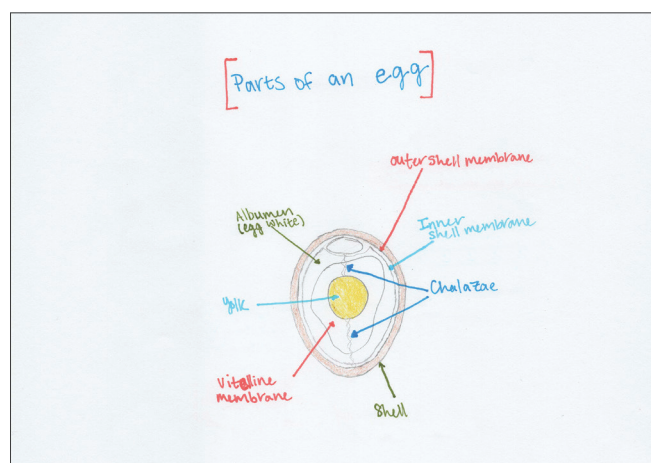 [Parts of an egg]
outer shell membrane
Albumen
(egg white)
Inner
shell membrane
Chalazae
yolk
Vitelline
membrane
Shell